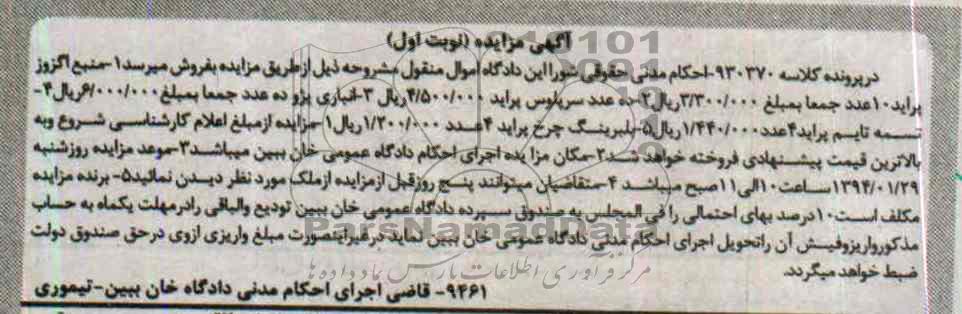 آگهی مزایده (نوبت اول)
درپرونده کلاسه ۹۳۰۳۷۰-احکام مدنی حقوقی شورا این دادگاه اموال منقول مشروحه ذیل ازطریق مزایده بفروش میرسد۱-منبع اگزوز
پراید۱۰عدد جمعا بمبلغ ۳/۳۰۰/۰۰۰ریال۲-ده عدد سرپلوس پراید ۴/۵۰۰/۰۰۰ریال ۳-انباری پژو ده عدد جمعا بمبلغ۶/۰۰۰/۰۰۰ریال۴-
تسمه تایم پراید۴عدد۱/۴۴۰/۰۰۰ریال۵-بلبرینگ چرخ پراید ۴عدد ۱/۲۰۰/۰۰۰ریال۱-مزایده ازمبلغ اعلام کارشناسی شروع وبه
بالاترین قیمت پیشنهادی فروخته خواهد شد۲-مکان مزایده اجرای احکام دادگاه عمومی خان ببین میباشد۳-موعد مزایده روزشنبه
۱۳۹۴/۰۱/۲۹ساعت۱۰الی۱۱صبح میباشد ۴-متقاضیان میتوانند پنج روزقبل ازمزایده ازملک مورد نظر دیدن نمائید۵- برنده مزایده
مکلف است۱۰درصد بهای احتمالی را فی المجلس به صندوق سپرده دادگاه عمومی خان ببین تودیع والباقی رادرمهلت یکماه به حساب
مذکورواریزوفیش آن راتحویل اجرای احکام مدنی دادگاه عمومی خان ببین نماید درغیراینصورت مبلغ واریزی ازوی درحق صندوق دولت
ضبط خواهد میگردد.
۹۴۶۱- قاضی اجرای احکام مدنی دادگاه خان ببین-تیموری
ParsNamadData
مرکز فرآوری اطلاعات پارس نماد داده ها